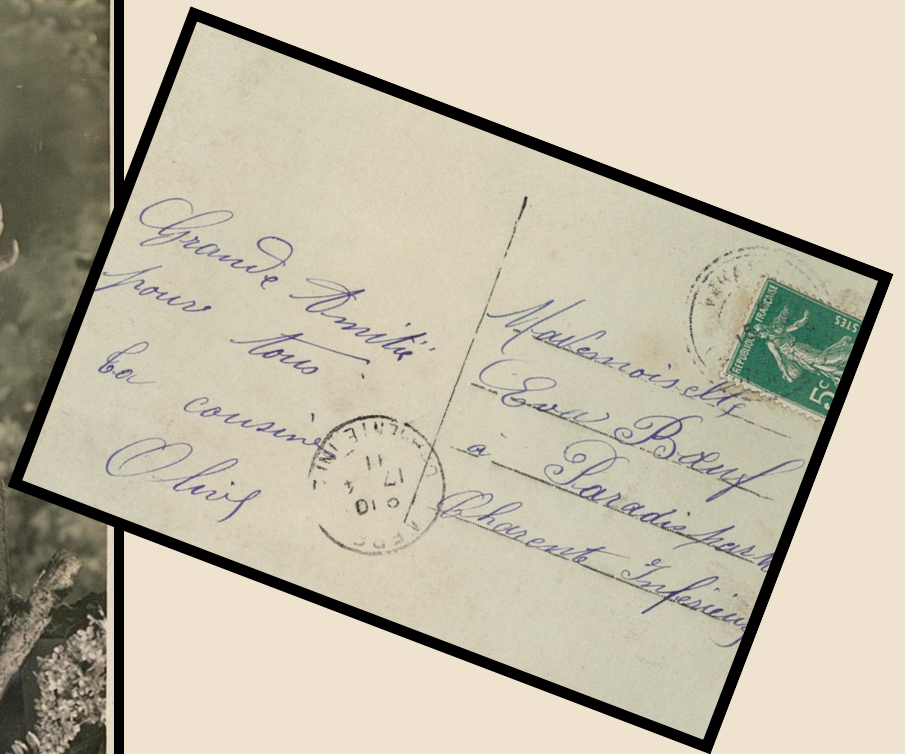 Grande Amitié
pour tous.
ta
cousine
Olive
Mademoiselle
Eva Bœuf
à Paradis par
Charente Inférieur
RÉPUBLIQUE FRANÇAISE
5c
17
11
10